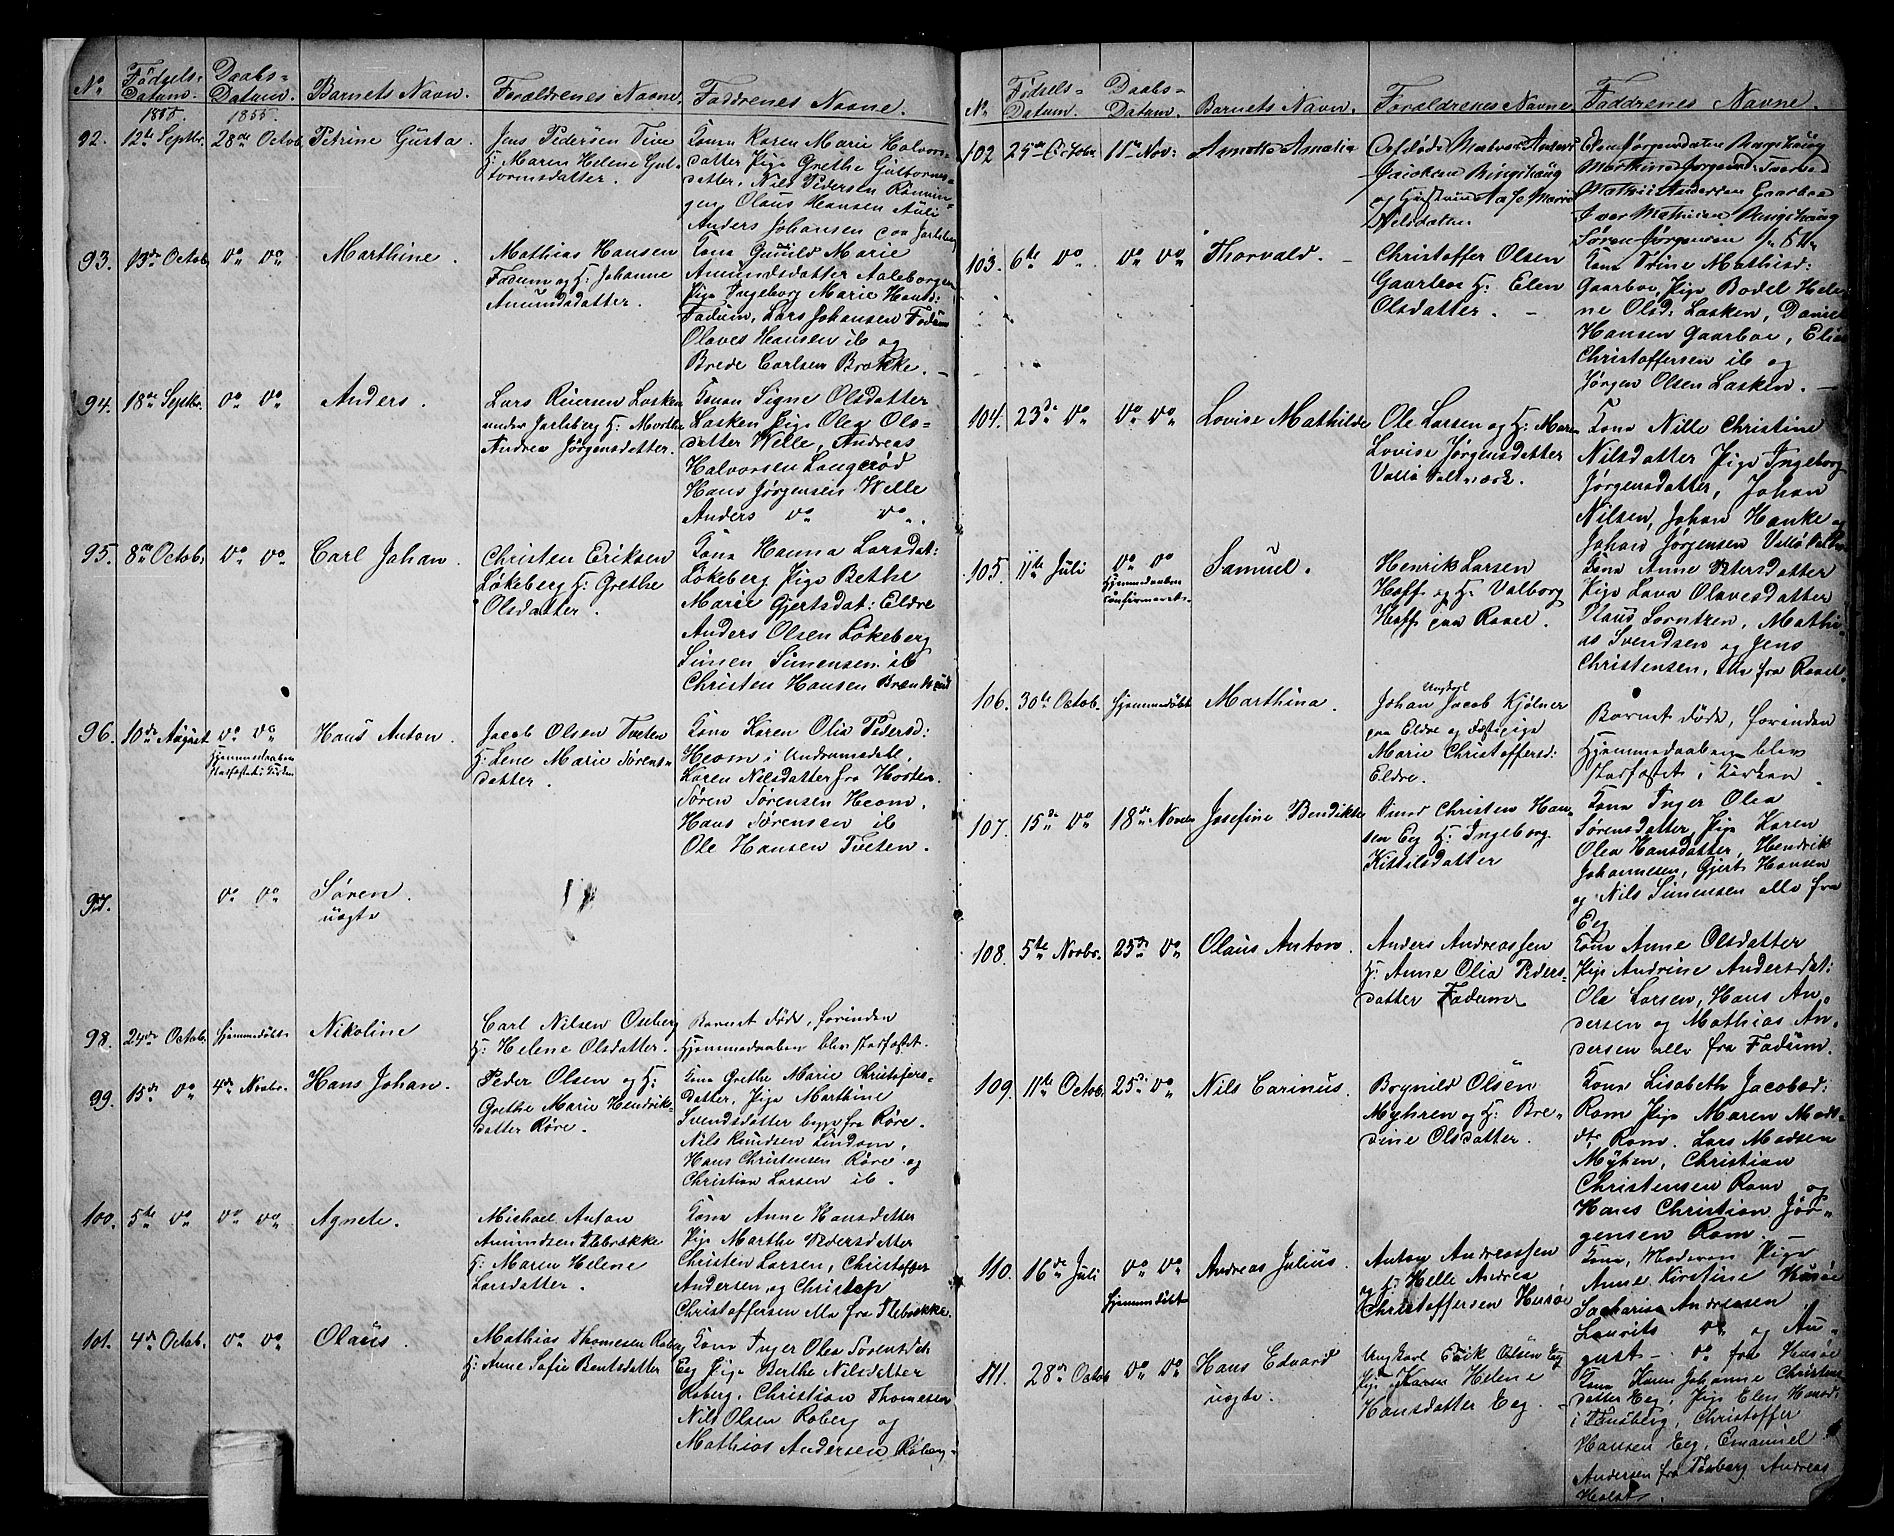 No Fødsels- Datum. Daabs- Datum. Barnets Navn. Forældrenes Navne. Faddrenes Navne.
1855. 1855.
92. 12te Septbr. 28de Octob. Petrine Gusta. Jens Pedersen
K: Maren Helene Gul-
tormsdatter.
Kona Karen Marie Halvors-
datter, Pige Grethe Gulborns-
datter, Nils Pedersen
Olaus Hansen Auli
Anders Johansen paa Jarlsberg
93. 13de Octob. do do Marthine. Mathias Hansen
Fadum og K: Johanne
Amundsdatter.
Kona Gunild Marie
Amundsdatter Aaleborgen
Pige Ingeborg Marie Hansd:
Fadum, Lars Johansen Fadum
Olaves Hansen ib og
Brede Carlsen Brække.
94. 18de Septbr. do do Anders. Lars Lasken
under Jarlsberg K: Marthe
Andrea Jørgensdatter.
Konen Signe Olsdatter
Lasken Pige Olea Ols-
datter Welle, Andreas
Halvorsen Langerød
Hans Jørgensen Welle
Anders do do.
95. 8de Octob. do do Carl Johan. Christen Eriksen
Løkeberg K: Grethe
Olsdatter.
Kona Hanna Larsdat:
Løkeberg Pige Bethe
Marie Gjertsdat: Eldre
Anders Olsen Løkeberg
Simen Simensen ib
Christen Hansen
96. 10de August do do Hans Anton. Jacob Olsen Tveten
Hjemmedaaben
stadfæstet i Kirken
K: Lene Marie Sørens-
datter.
Kona Karen Olia Pedersd:
Heom i Undrumsdal,
Karen Nilsdatter fra Horten
Søren Sørensen Heom,
Hans Sørensen ib
Ole Hansen Tveten.
97. do do Søren.
uægte
98. 24de Octob. hjemmedöbt Nikoline Carl Nilsen
K: Helene Olsdatter.
Barnet døde, forinden
Hjemmedaaben blev stadfæstet.
99. 15de do 4de Novbr. Hans Johan. Peder Olsen og K:
Grethe Marie Hendriks-
datter Røre.
Kona Grethe Marie Christofers-
datter, Pige Marthine
Svendsdatter begge fra Røre.
Nils Knudsen Lindom,
Hans Christensen Røre og
Christian Larsen ib.
100. 5te do do do Agnete. Michael Anton
Amundsen Ilebrække
K: Maren Helene
Larsdatter.
Kona Anne Hansdatter
Pige Marthe Pedersdatter
Christen Larsen, Christoffer
Andersen, og Christofr
Christoffersen Alle fra Ilebrække.
101. 4de Octob. do do Olaus. Mathias Thomesen Roberg
K: Anne Sofie Bentsdatter
Kona Inger Olea Sørensdt
Eeg Pige Berthe Nilsdatter
Roberg, Christian Thomesen
Nils Olsen Roberg og
Mathias Andersen Roberg
No Fødsels- Datum. Daabs- Datum. Barnets Navn. Forældrenes Navne Faddrenes Navne.
102 25de Octobr 11te Nov: Annette Amalia
Ringshaug
Nilsdatter
Gaarboe
Iver Mathisen Ringshaug
Søren Jørgensen
103. 6te do do do Thorvald. Christoffer Olsen
Gaarboe K: Elen
Olsdatter.
Kona Trine Mathisd:
Gaarboe, Pige Bodel Hele-
ne Olsd: Lasken, Daniel
Hansen Gaarboe, Elias
Christoffersen ib og
Jørgen Olsen Lasken.
104. 23de do do do Lovise Mathilde Ole Larsen og K: Maren
Lovise Jørgensdatter
Vallø Saltværk.
Kona Nille Christine
Nilsdatter Pige Ingeborg
Jørgensdatter, Johan
Nilsen, Johan Hanke og
Johan Jørgensen Vallø
105. 11te Juli do do Samuel. Henrik Larsen
Hjemmedaaben
confirmeret.
Hoff og K: Valborg
Hoff paa Ravel.
Kona Anne Petersdatter
Pige Lava Olavesdatter
Plaus Lorntzen, Mathi-
as Svendsen og Jens
Christensen, Alle fra Ravel
106. 30te Octob. hjemmedöbt Marthina. Ungkarl
Johan Jacob Kjølner
paa Eldre og Pige
Marie Christoffersd:
Eldre.
Barnet døde, forinden
Hjemmedaaben blev
stadfæstet i Kirken
107. 15de do 18de Novbr Josefine Bendikte Christen Han-
sen Eeg K: Ingeborg
Kittilsdatter
Kona Inger Olea
Sørensdatter, Pige Karen
Olea Hansdatter, Hendrik
Johannesen, Gjert Hansen
og Nils Simensen alle fra
Eeg
108. 5te Novbr. 25de do Olaus Anton. Anders Andreassen
K: Anne Olia Peders-
datter Fadum
Kona Anne Olsdatter
Pige Andrine Andersdat:
Ole Larsen, Hans An-
dersen og Mathias An-
dersen alle fra Fadum.
109. 11te Octob. 25de do Nils Carinus. Boynild Olsen
Myhren og K: Bre-
dine Olsdatter.
Kona Lisabeth Jacobsd:
Rom Pige Maren Mads-
dtr Rom. Lars Madsen
Myhen, Christian
Christensen Rom og
Hans Christian Jør-
gensen Rom.
110. 16de Juli do do Andreas Julius. Anton Andreassen
hjemmedöbt
og K: Helle Andrea
Christoffersen Husøe
Kona, Moderen Pige
Anne Kirstine Husøe
Sacharias Andreasen
Laurits do og Au-
gust do fra Husøe
111. 28de Octob do do Hans Edvard
uægte.
Ungkarl Erik Olsen Eeg
Pige Karen Helene
Hansdatter Eeg.
Kona Karen Johanne Christens
datter Eeg, Pige Elen Hansd:
i Tønsberg, Christoffer
Hansen Eeg, Emanuel
Andersen fra Tønsberg Andreas
Holst.